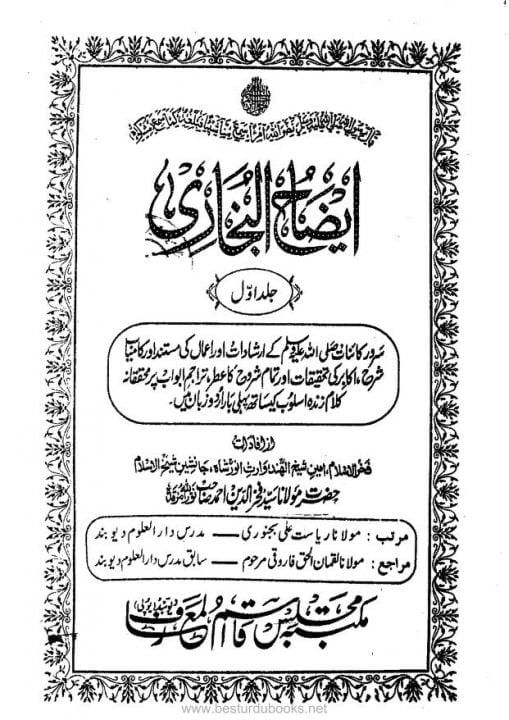 قال النبي صلى الله عليه وسلم نضر الله امرأ سمع منا شيئا فبلغه كما سمعه
ایضاح البخاری
جلد اوّل
سرور کائنات صلی اللہ علیہ وسلم کے ارشادات اور اعمال کی مستند اور کامیاب
شرح، اکابر کی تحقیقات اور تمام شروح کا عطر، تراجم ابواب پر محققانہ
کلام زندہ اسلوب کیساتھ پہلی بار اردو زبان میں۔
از افادات
فخر الاسلام، امین شیخ الہند وارث انور شاہ، جانشین شیخ الاسلام
حضرت مولانا سید فخر الدین احمد صاحب نور اللہ مرقدہ
مرتب : مولانا ریاست علی بجنوری — مدرس دار العلوم دیوبند
مراجع : مولانا لقمان الحق فاروقی مرحوم — سابق مدرس دار العلوم دیوبند
مکتبہ مجلس قاسم المعارف دیوبند (یوپی)
www.besturdubooks.net